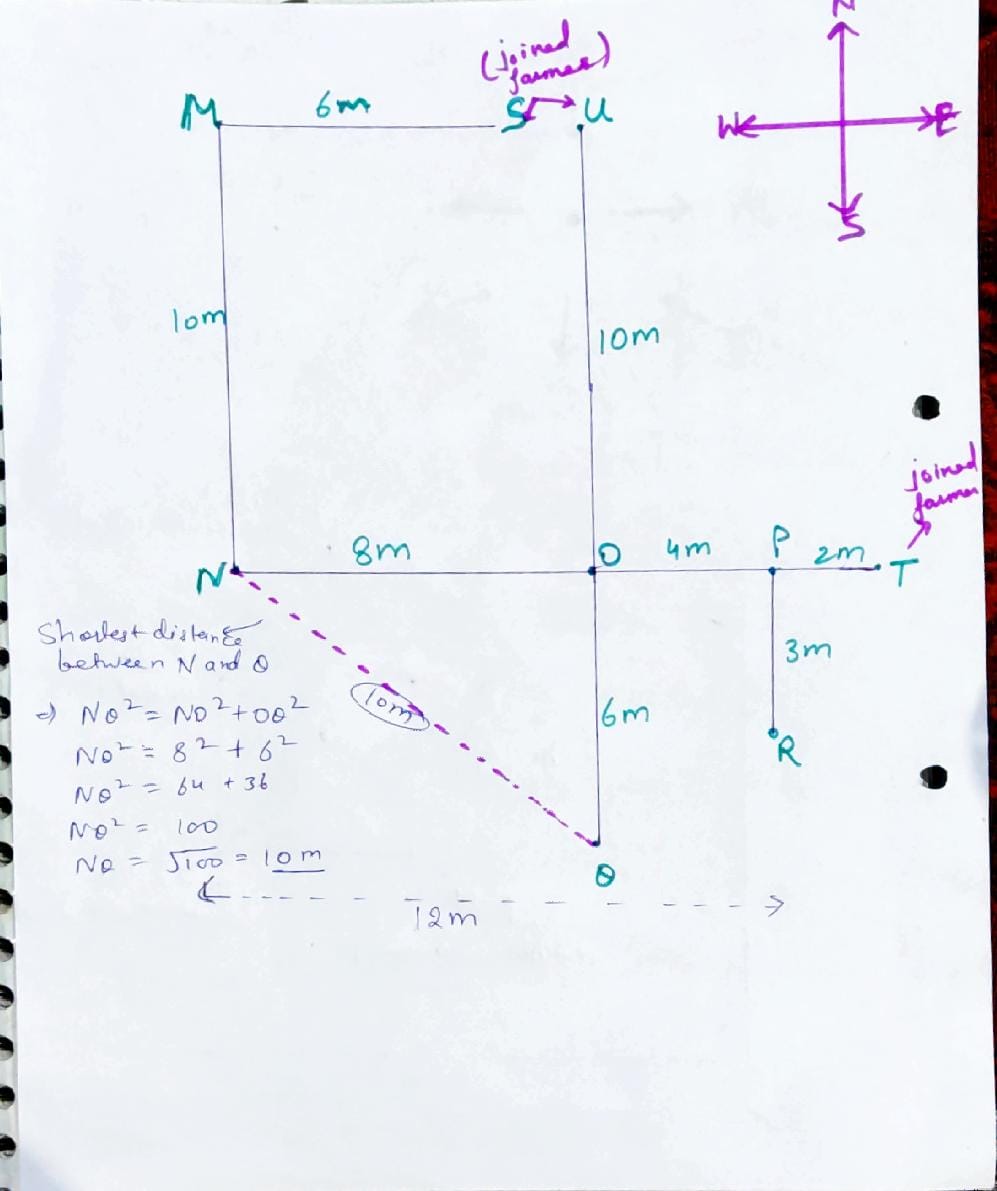 N
(joined
farmer)
M 6m S U
W E
S
10m
10m
joined
farmer
8m O 4m P 2m T
N
Shortest distance
between N and Q
3m
⇒ NQ² = NO² + OQ²
10m
6m
NQ² = 8² + 6²
R
NQ² = 64 + 36
NQ² = 100
NQ = √100 = 10m
Q
12m